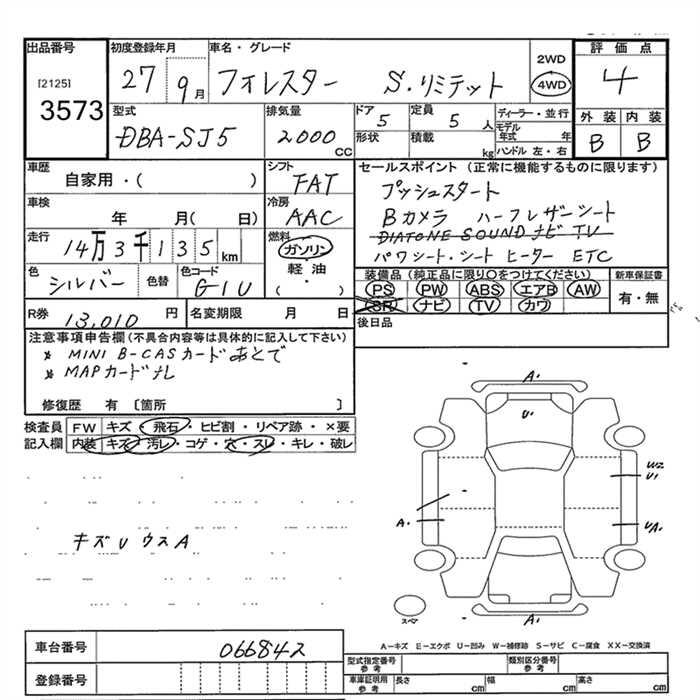 出品番号 初度登録年月 車名・グレード 2WD 評価点
[2125] 27 9月 フォレスター S・リミテット 4WD 4
3573 型式 排気量 ドア 定員 ディーラー・並行 外装 内装
DBA-SJ5 2000 CC 5 5人 モデル年式 年 B B
形状 積載 kg ハンドル 左・右
車歴 シフト セールスポイント (正常に機能するものに限ります)
自家用・( ) FAT プッシュスタート
車検 冷房 Bカメラ ハーフレザーシート
年 月( 日) AAC DIATONE SOUND ナビ TV
走行 燃料 パワシート・シートヒーター ETC
14万3千135km ガソリン
色 色替 色コード 軽油 装備品 (純正品に限り○をつけてください) 新車保証書
シルバー G1U ・( ) PS PW ABS エアB AW 有・無
SR ナビ TV カワ
R券 13,010円 名変期限 月 日 後日品
注意事項申告欄(不具合内容等は具体的に記入して下さい)
* MINI B-CASカードあとで
* MAPカードナシ
修復歴 有 〔箇所 〕
検査員 FW キズ・飛石・ヒビ割・リペア跡・×要
記入欄 内装 キズ・汚レ・コゲ・穴・スレ・キレ・破レ
A.
U.
W2
U1
A. UA.
キズU ウスA
スペア A.
A-キズ E-エクボ U-凹み W-補修跡 S-サビ C-腐食 XX-交換済
車台番号 066842 型式指定番号 参考 類別区分番号 参考
登録番号 車庫証明用 参考 長さ cm 幅 cm 高さ cm